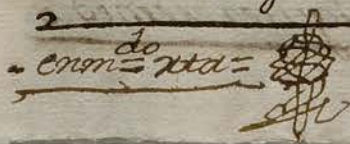 enmdo= xta=